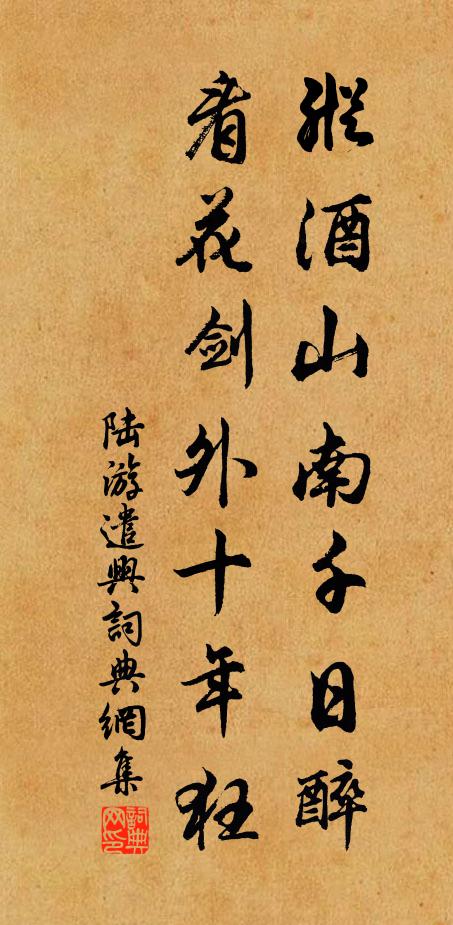 縱酒山南千日醉
看花剑外十年狂
陆游遣興詞典網集
詞典网印